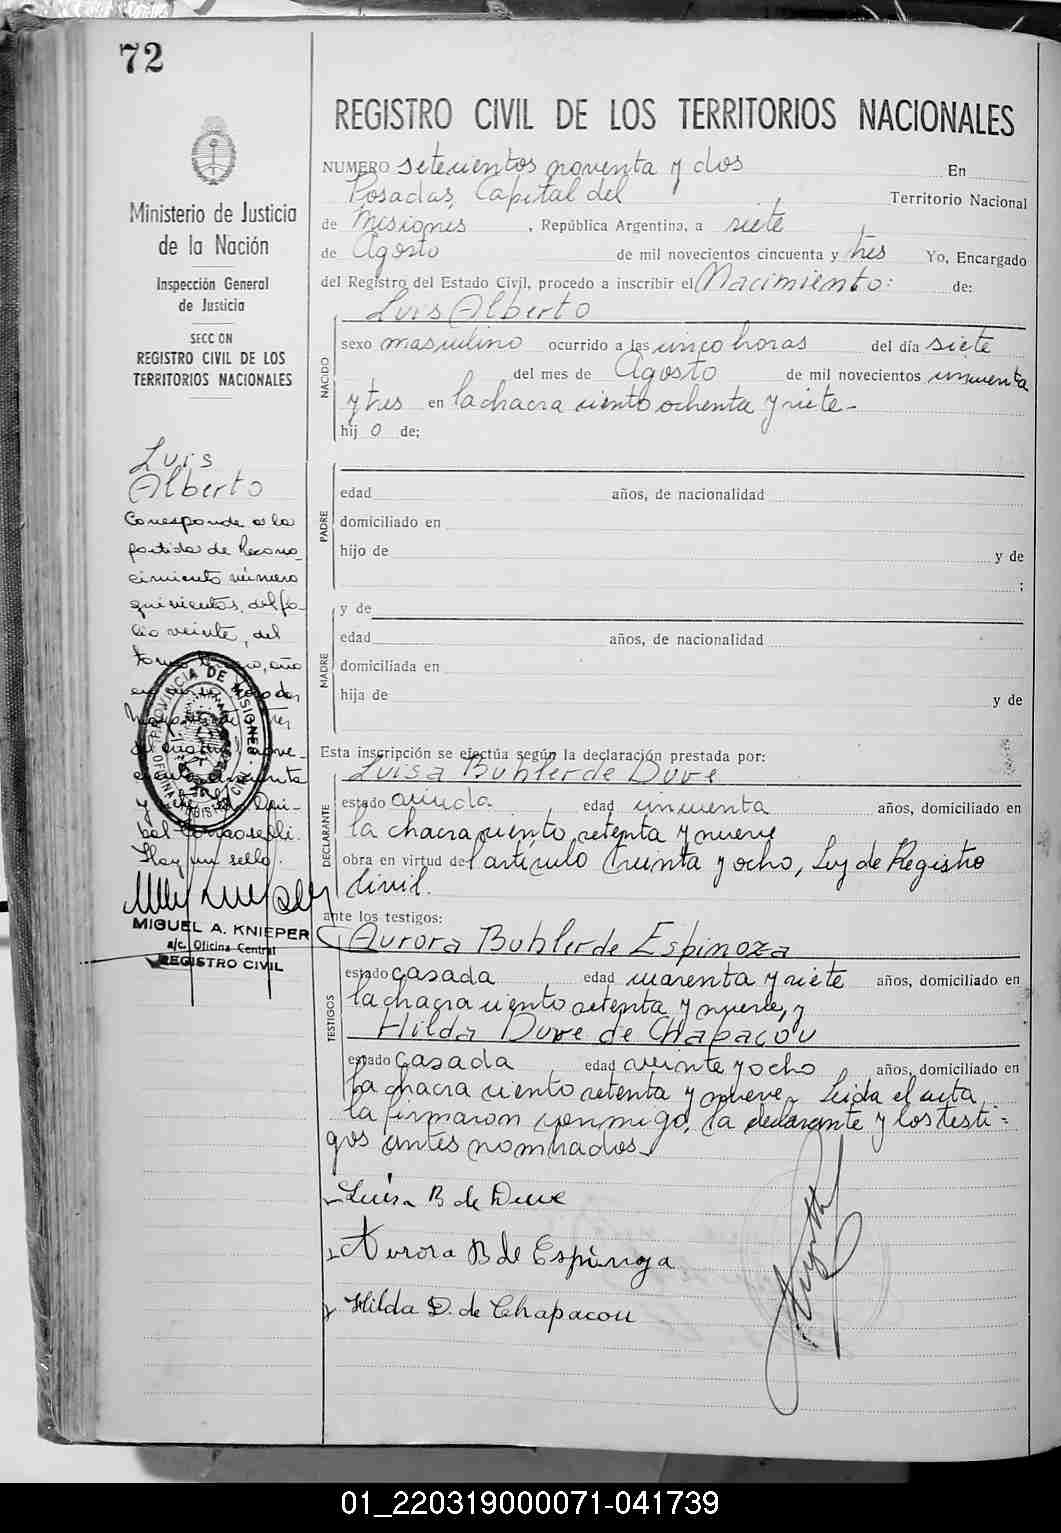 72
REGISTRO CIVIL DE LOS TERRITORIOS NACIONALES
Ministerio de Justicia
de la Nación
Inspección General
de Justicia
SECCION
REGISTRO CIVIL DE LOS
TERRITORIOS NACIONALES
NUMERO setecientos noventa y dos En
Posadas, Capital del Territorio Nacional
de Misiones, República Argentina, a siete
de Agosto de mil novecientos cincuenta y tres Yo, Encargado
del Registro del Estado Civil, procedo a inscribir el Nacimiento: de:
Luis Alberto
NACIDO
sexo masculino ocurrido a las cinco horas del día siete
del mes de Agosto de mil novecientos cincuenta
y tres en la chacra ciento ochenta y siete-
hij o de;
PADRE
edad años, de nacionalidad
domiciliado en
hijo de y de
;
y de
MADRE
edad años, de nacionalidad
domiciliada en
hija de y de
Esta inscripción se efectúa según la declaración prestada por:
Luisa Buhler de Duve
DECLARANTE
estado viuda, edad cincuenta años, domiciliado en
la chacra ciento setenta y nueve
obra en virtud del artículo treinta y ocho, Ley de Registro
Civil.
ante los testigos:
Aurora Buhler de Espinoza
TESTIGOS
estado casada edad cuarenta y siete años, domiciliado en
la chacra ciento setenta y nueve, y
Hilda Duve de Chapacou
estado casada, edad veinte y ocho años, domiciliado en
la chacra ciento setenta y nueve, Leida el acta,
la firmaron conmigo, la declarante y los testi=
gos antes nombrados
Luisa B de Duve
Aurora B de Espinoza
Hilda D. de Chapacou
Luis
Alberto
Corresponde a la
partida de Recono-
cimiento número
quinientos, del fo-
lio veinte, del
Hay un sello.
PROVINCIA DE MISIONES
OFICINA REGISTRO CIVIL
MIGUEL A. KNIEPER
a/c. Oficina Central
REGISTRO CIVIL
01_220319000071-041739